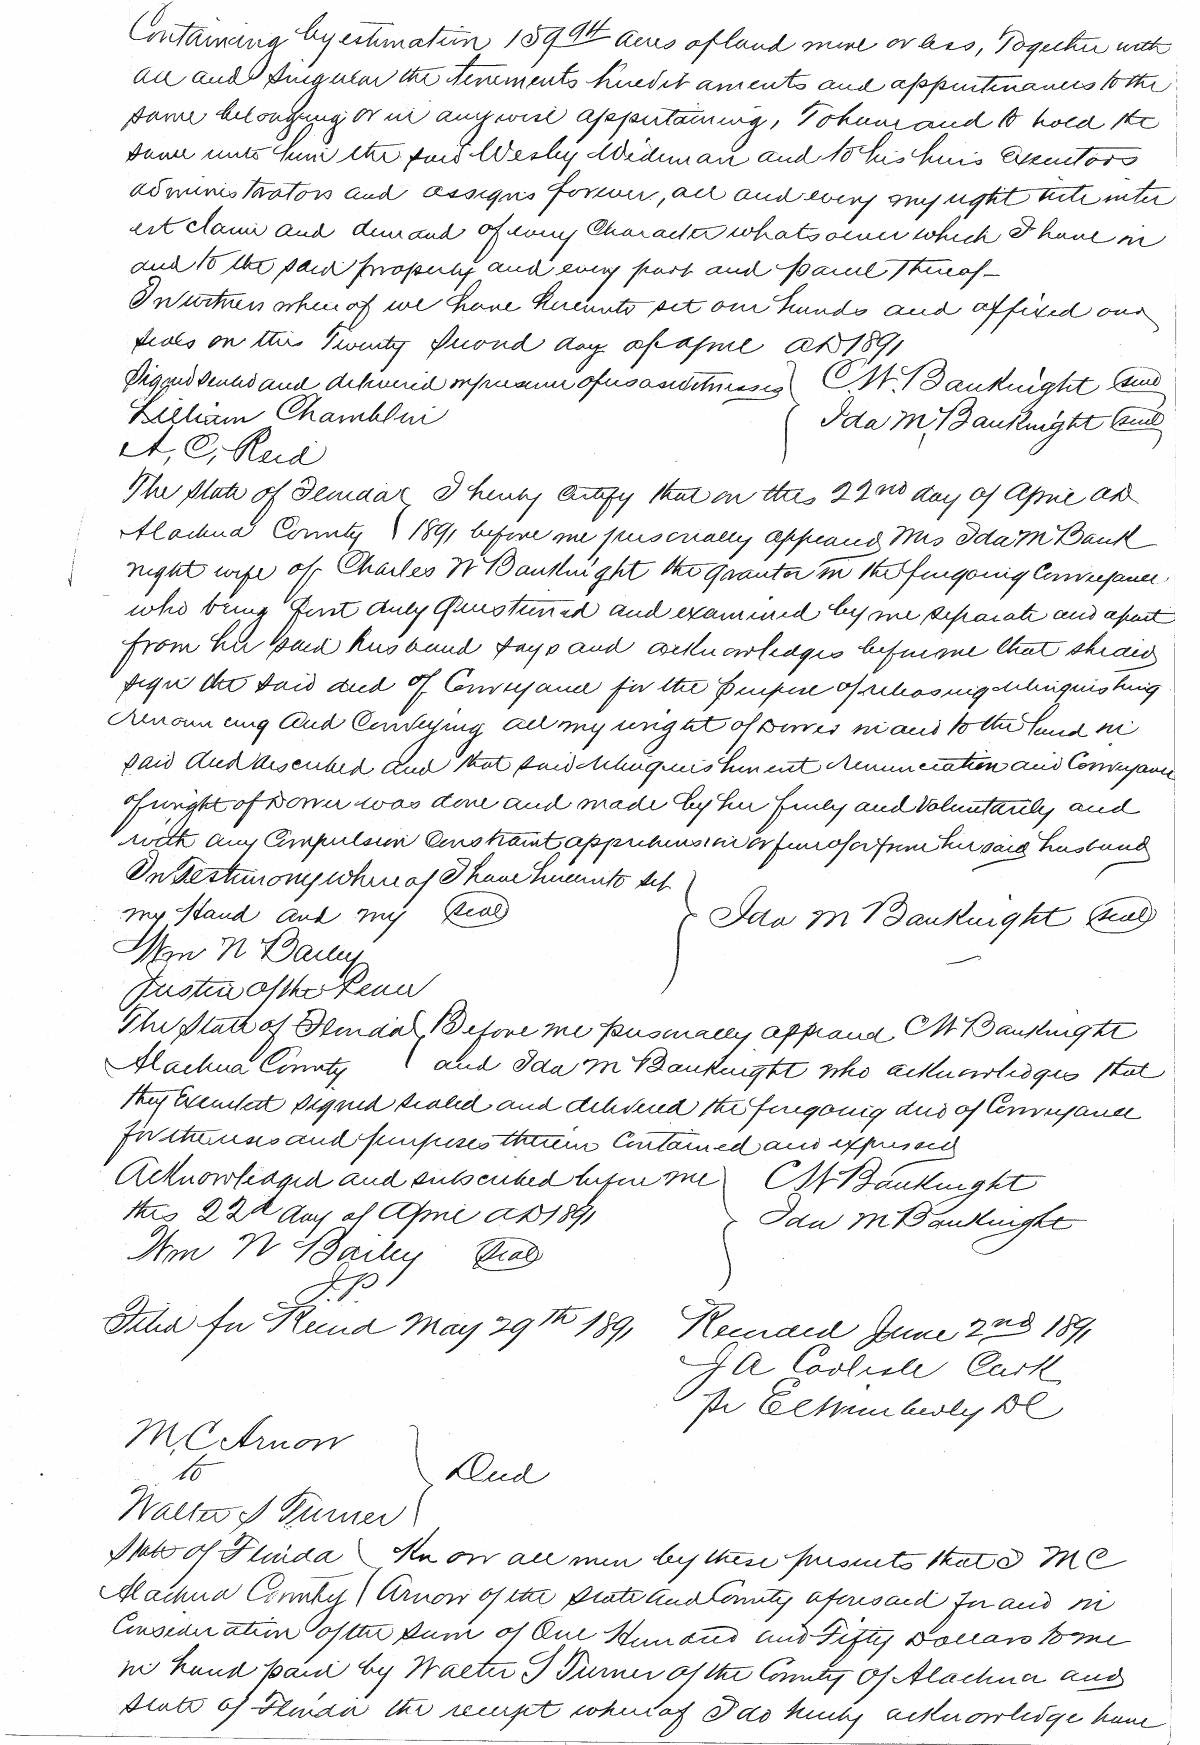 Containing by estimation 159 94 acres of land more or less, Together with
all and Singular the tenements heredit aments and appurtenances to the
same belonging or in any wise appertaining, To have and to hold the
same unto him the said Wesley Wideman and to his heirs Executors
administrators and assigns forever, all and every my right title inter
est claim and demand of every Character whatsoever which I have in
and to the said property and every part and parcel thereof—
In witness where of we have hereunto set our hands and affixed our
seals on this Twenty Second day of April AD 1891
Signed sealed and delivered in presence of us as witnesses } C W. Bauknight (seal)
William Chamblin Ida M. Bauknight (seal)
A, C, Reid
The State of Florida { I hereby Certify that on this 22nd day of April AD
Alachua County } 1891 before me personally appeared Mrs Ida M Bauk
night wife of Charles W Bauknight the grantor in the foregoing Conveyance
who being first duly Questioned and examined by me separate and apart
from her said husband says and acknowledges before me that she did
sign the said deed of Conveyance for the purpose of releasing relinquishing
renouncing And Conveying all my wright of Dower in and to the land in
said deed described and that said relinquishment renunciation and Conveyance
of wright of Dower was done and made by her freely and voluntarily and
with any Compulsion Constraint apprehension or fear of or from her said husband
In Testimony where of I have hereunto set
my Hand and my (seal) } Ida M Bauknight (seal)
Wm N Bailey
Justice of the Peace
The State of Florida { Before me personally appeared C W Bauknight
Alachua County ( and Ida M Bauknight who acknowledges that
they Executed signed sealed and delivered the foregoing deed of Conveyance
for the uses and purposes therein Contained and expressed
Acknowledged and subscribed before me } C W Bauknight
this 22d day of April AD 1891 Ida M Bauknight
Wm N Bailey (seal)
J.P.
Filed for Record May 29th 1891 Recorded June 2nd 1891
J A Carlisle Clerk
pr E C Wimberly DC
M, C Arnow
to } Deed
Walter S Turner
State of Florida ( Know all men by these presents that I M C
Alachua County ( Arnow of the state and County aforesaid for and in
Consideration of the sum of One Hundred and Fifty Dollars to me
in hand paid by Walter S Turner of the County of Alachua and
State of Florida the receipt where of I do hereby acknowledge have